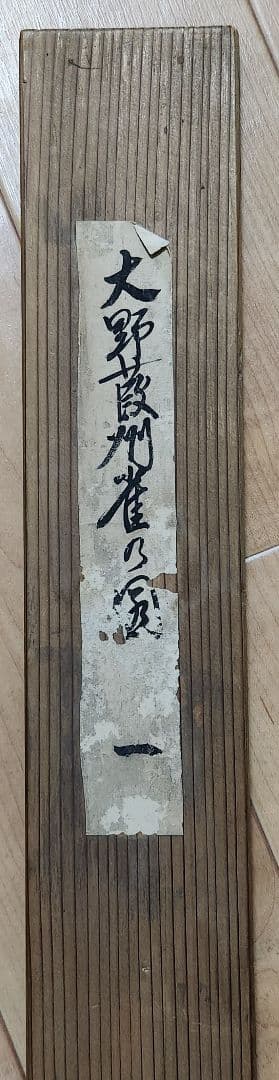 大野葭州雀乃図 一